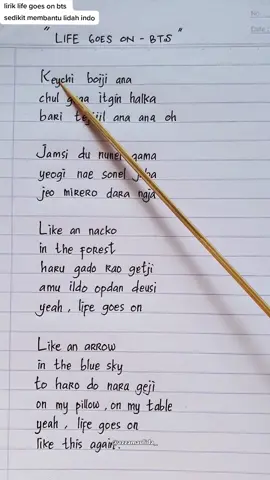 lirik life goes on bts
sedikit membantu lidah indo
No
Date
" LIFE GOES ON - BTS "
Keuchi boiji ana
chul guga itgin halka
bari tejijil ana ana oh
Jamsi du nunel gama
yeogi nae sonel jaba
jeo mirero dara ngja
Like an nacko
in the forest
haru gado rao getji
amu ildo opdan deusi
yeah, life goes on
Like an arrow
in the blue sky
to haro do nara geji
on my pillow, on my table
yeah, life goes on
like this again.